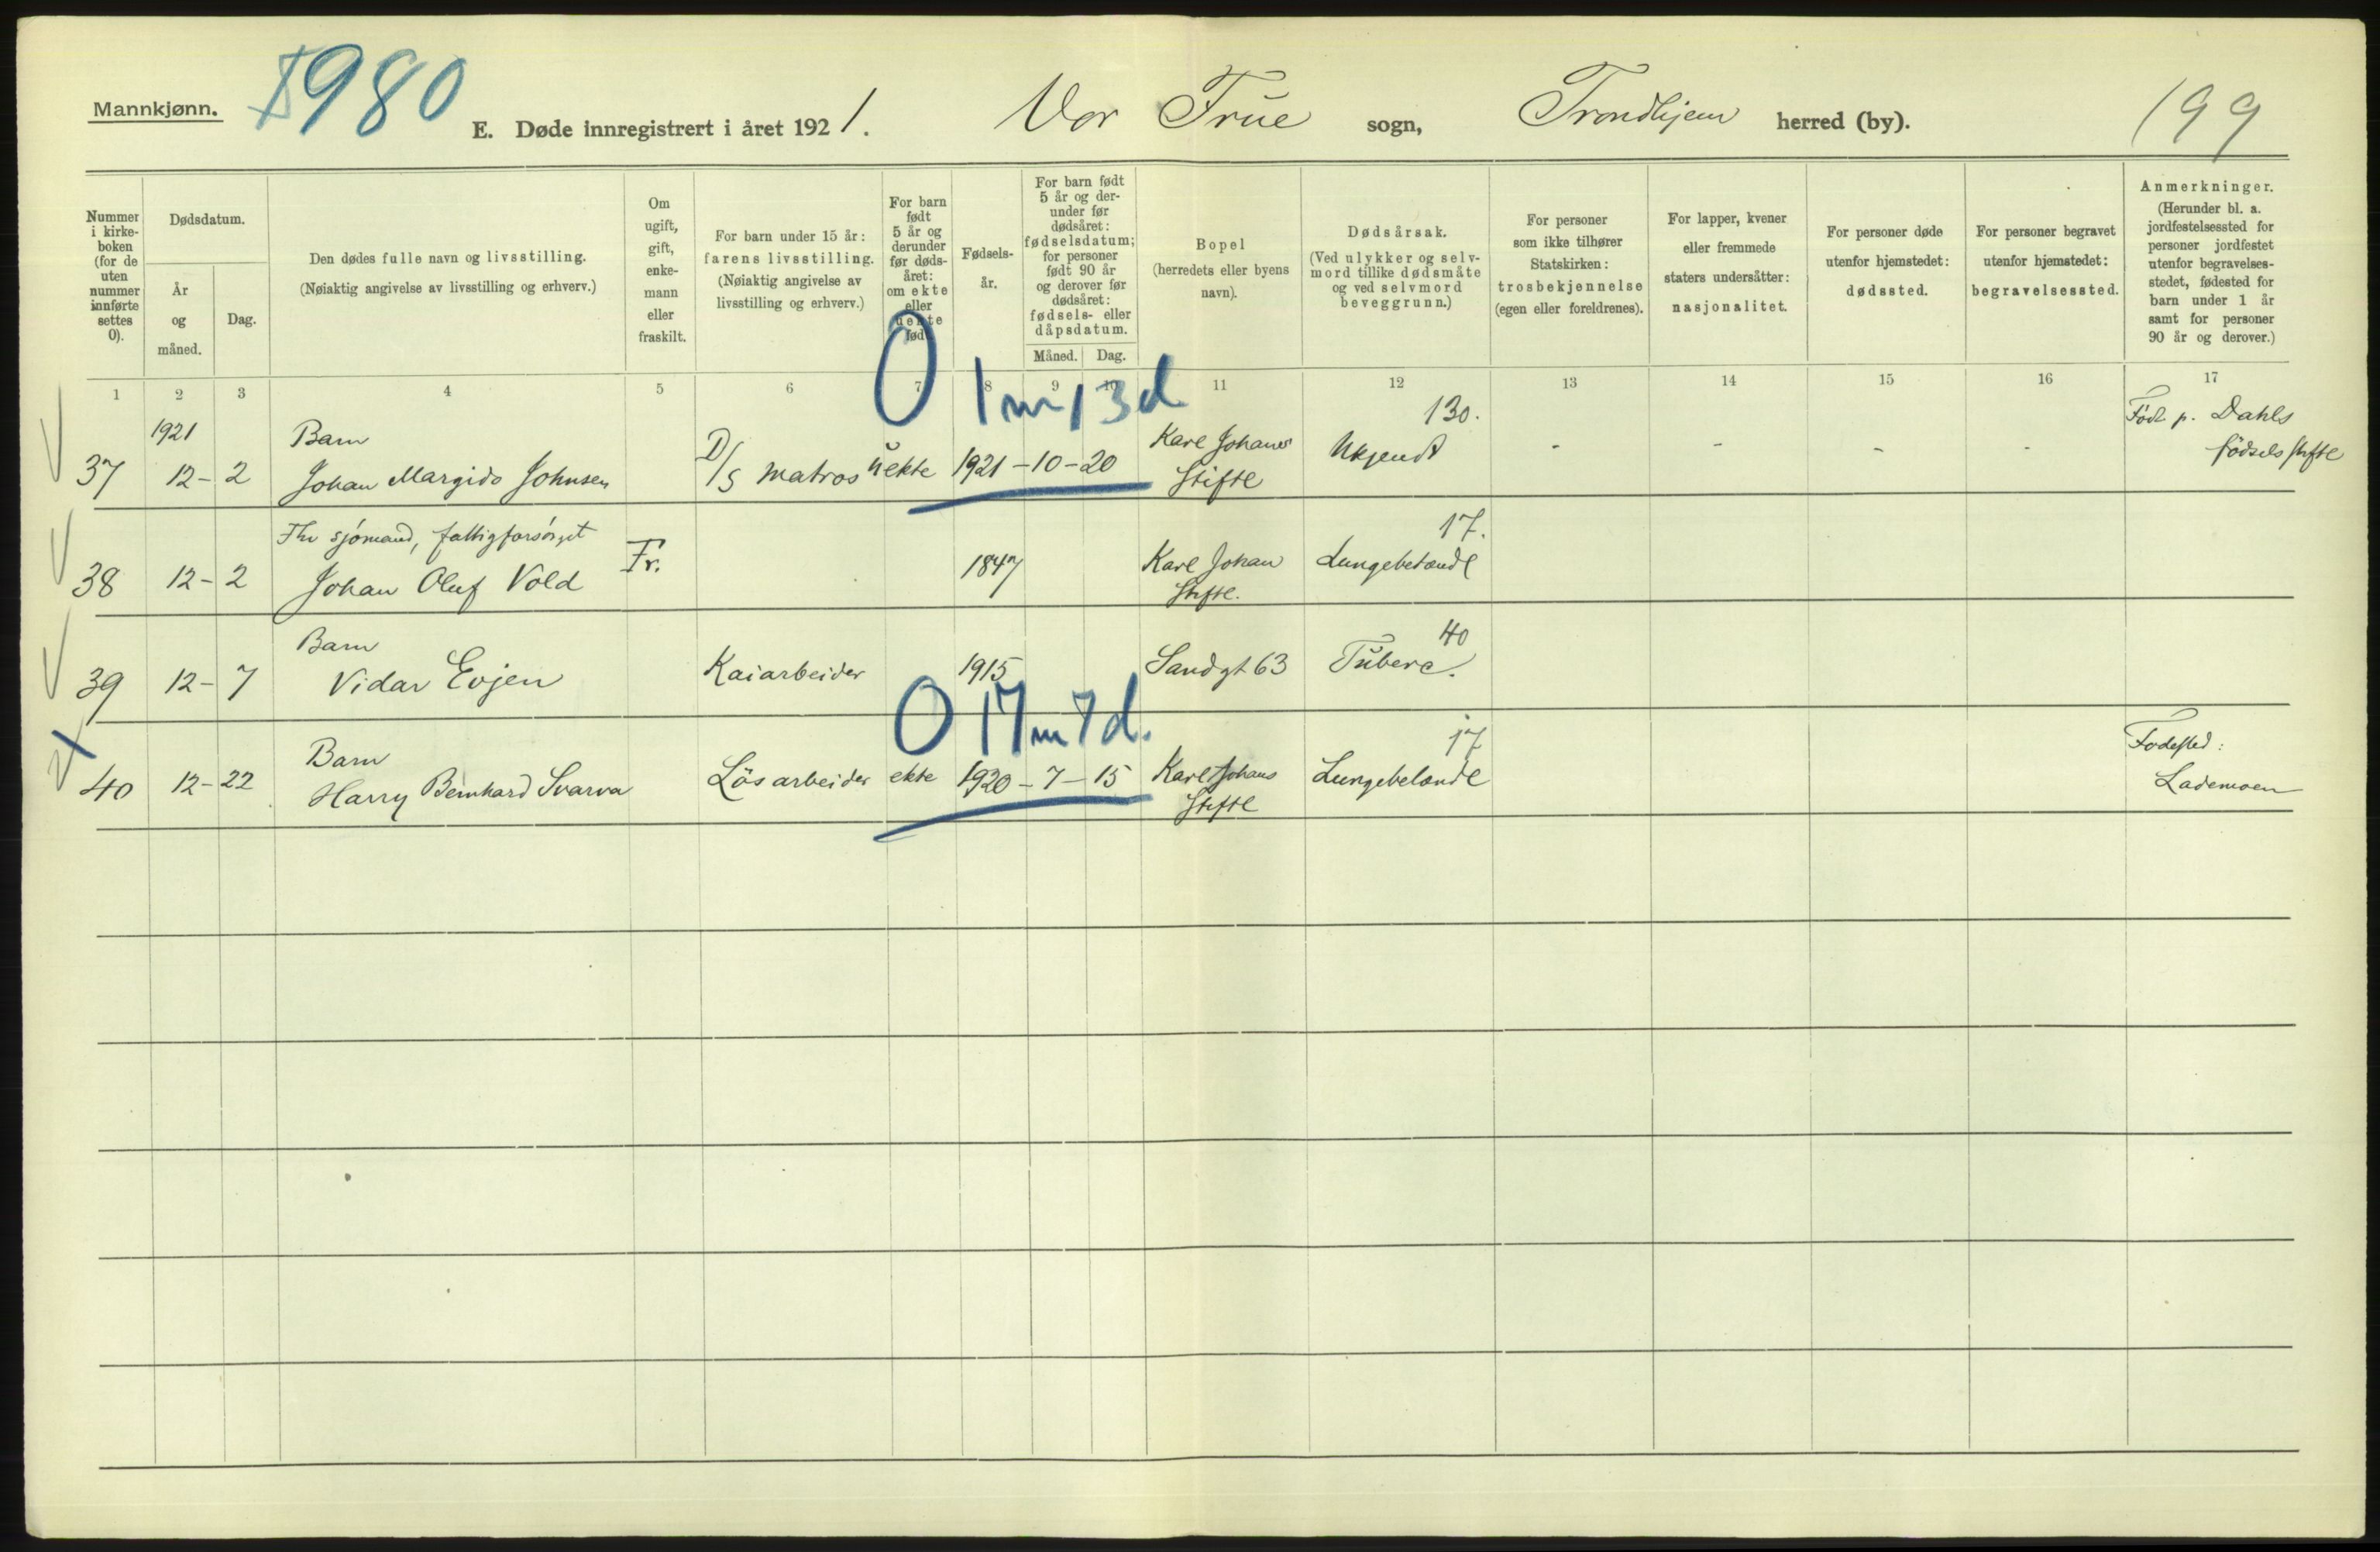 Mannkjønn.
1980
E. Døde innregistrert i året 1921. Vor Frue sogn, Trondhjem herred (by).
199
Nummer
i kirke-
boken
(for de
uten
nummer
innførte
settes
0).
Dødsdatum.
År
og
måned.
Dag.
Den dødes fulle navn og livsstilling.
(Nøiaktig angivelse av livsstilling og erhverv.)
Om
ugift,
gift,
enke-
mann
eller
fraskilt.
For barn under 15 år:
farens livsstilling.
(Nøiaktig angivelse av
livsstilling og erhverv.)
For barn
født
5 år og
derunder
før døds-
året:
om ekte
eller
uekte
født
Fødsels-
år.
For barn født
5 år og der-
under før
dødsåret:
fødselsdatum;
for personer
født 90 år
og derover før
dødsåret:
fødsels- eller
dåpsdatum.
Måned. Dag.
Bopel
(herredets eller byens
navn).
Dødsårsak.
(Ved ulykker og selv-
mord tillike dødsmåte
og ved selvmord
beveggrunn.)
For personer
som ikke tilhører
Statskirken:
trosbekjennelse
(egen eller foreldrenes).
For lapper, kvener
eller fremmede
staters undersåtter:
nasjonalitet.
For personer døde
utenfor hjemstedet:
dødssted.
For personer begravet
utenfor hjemstedet:
begravelsessted.
Anmerkninger.
(Herunder bl. a.
jordfestelsessted for
personer jordfestet
utenfor begravelses-
stedet, fødested for
barn under 1 år
samt for personer
90 år og derover.)
1 2 3 4 5 6 7 8 9 10 11 12 13 14 15 16 17
0 1 m 13 d
1921 Barn Karl Johans 130. Født p. Dahls
37 12-2 Johan Margido Johnsen D/S Matros uekte 1921-10-20 Stifte Ukjendt - - - - fødsels stifte
Fhv sjömand, fattigforsörget 17.
38 12-2 Johan Oluf Vold Fr. 1847 Karl Johan Lungebetænd
Stifte.
Barn 40
39 12-7 Vidar Evjen Kaiarbeider 1915 Sandgt 63 Tuberc.
0 17 m 7 d.
Barn 17 Fødested:
40 12-22 Harry Bernhard Svarva Lösarbeider ekte 1920-7-15 Karl Johans Lungebetænd Lademoen
Stifte